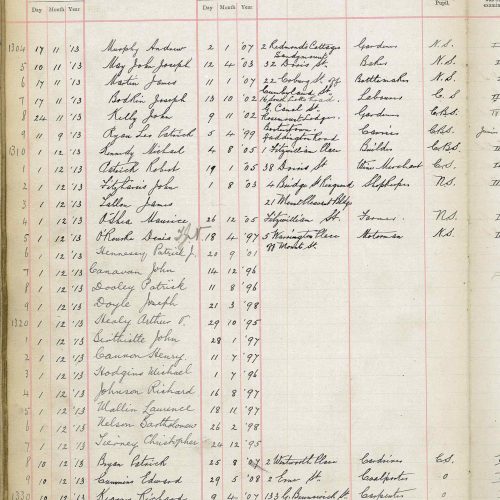 Day Month Year Day Month Year Pupil.
1304 17 11 '13 Murphy Andrew 2 1 '07 2 Redmonds Cottages Gardener N.S.
Sandymount
5 10 11 '13 May John Joseph 12 4 '03 32 Davis St. Baker N.S.
6 17 11 '13 Martin James 11 1 '07 22 Coburg St. off Bottlemaker N.S.
Cumberland St.
7 17 11 '13 Bodkin Joseph 13 10 '02 Labourer
8 24 11 '13 Kelly John 9 11 '02 Canal St. Gardener C.B.S.
Rosemount Lodge
9 11 9 '13 Ryan Leo Patrick 5 4 '99 C.B.S. June
Haddington Road
1310 1 12 '13 Kennedy Michael 4 8 '05 1 Fitzwilliam Place Builder C.B.S.
1 1 12 '13 Robert 19 1 '05 38 Davis St Wine Merchant
2 1 12 '13 Fitzharris John 1 8 '03 4 Bridge St Ringsend Shopkeeper N.S.
3 1 12 '13 James 21 Mount Pleasant Bldgs
4 1 12 '13 O'Shea Maurice 26 12 '05 Fitzwilliam St. N.S.
5 1 12 '13 O'Rourke Denis 18 4 '97 5 Warrington Place Motorman N.S.
99 Mount St.
6 1 12 '13 Hennessy, Patrick J. 20 9 '01
7 1 12 '13 Canavan John 14 12 '96
8 1 12 '13 Dooley Patrick 11 8 '96
9 1 12 '13 Doyle Joseph 21 3 '98
1320 1 12 '13 Healy Arthur P. 29 10 '95
1 1 12 '13 Birthistle John 28 1 '97
2 1 12 '13 Cannon Henry. 11 7 '97
3 1 12 '13 Hodgins Michael 1 7 '96
4 1 12 '13 Johnson Richard 16 8 '97
5 1 12 '13 Mallin Laurence 18 11 '97
6 1 12 '13 Nelson Bartholomew 26 2 '98
7 1 12 '13 Tierney, Christopher 24 12 '95
8 10 12 '13 Bryan Patrick 25 8 '07 2 Wentworth Place C.S.
9 10 12 '13 Cummins Edward 29 5 '08 2 St. 0
1330 10 12 '13 Richard 9 4 '07 133 G. Brunswick St. Carpenter 0